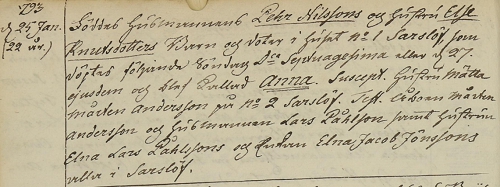 793
d. 25 Jan.
(22 ur.)
Föddes Husmannens Pehr Nilssons och Hustru Else
Knutsdotters Barn och doter i huset No 1 Sarslöf som
döptes följande Söndag Dca Septuagesima eller d. 27.
ejusdem och blef kallad Anna. Suscept. Hustru Mätta
Mårten Andersson på No 2 Sarslöf. Test. Åboen Mårten
Andersson och Husmannen Lars Påhlson samt Hustrun
Elna Lars Påhlssons och Enkan Elna Jacob Jönssons
alla i Sarslöf.